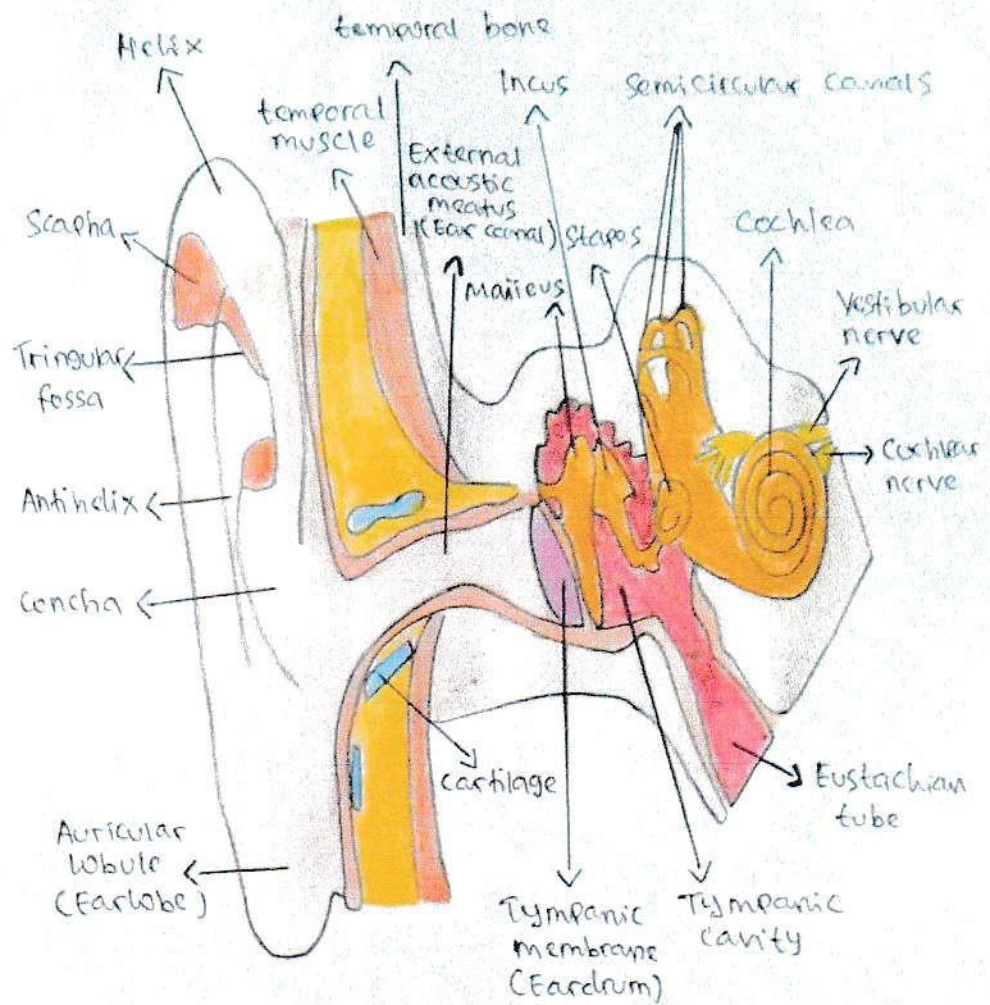 Helix
temporal bone
Incus
Semicircular canals
temporal
muscle
External
acoustic
meatus
(Ear canal)
Stapes
Malleus
Cochlea
Scapha
Vestibular
nerve
Tringular
fossa
Cochlear
nerve
Antihelix
Concha
Cartilage
Eustachian
tube
Auricular
lobule
(Earlobe)
Tympanic
membrane
(Eardrum)
Tympanic
cavity